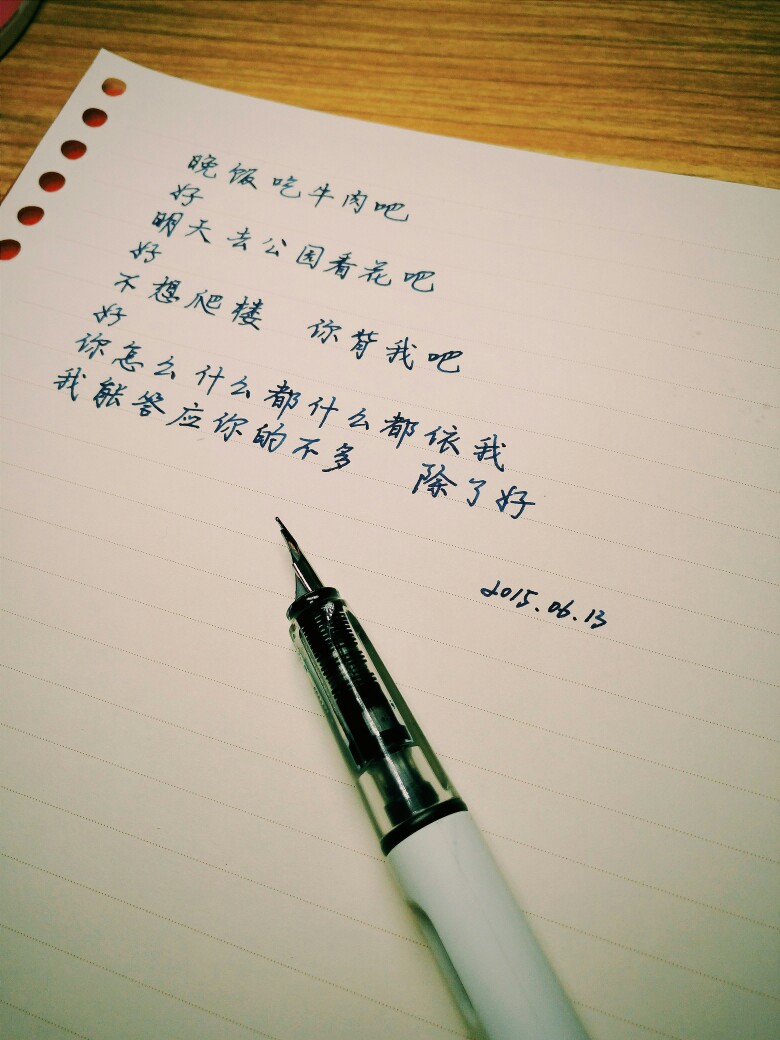 晚饭吃牛肉吧
好
明天去公园看花吧
好
不想爬楼 你背我吧
好
你怎么什么都什么都依我
我能答应你的不多 除了好
2015.06.13